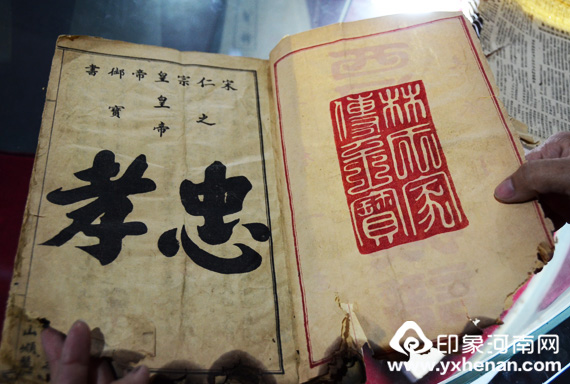 宋仁宗皇帝御書
皇帝之寶
忠孝
林
傳 寶
山城
印象河南网
www.yxhenan.com